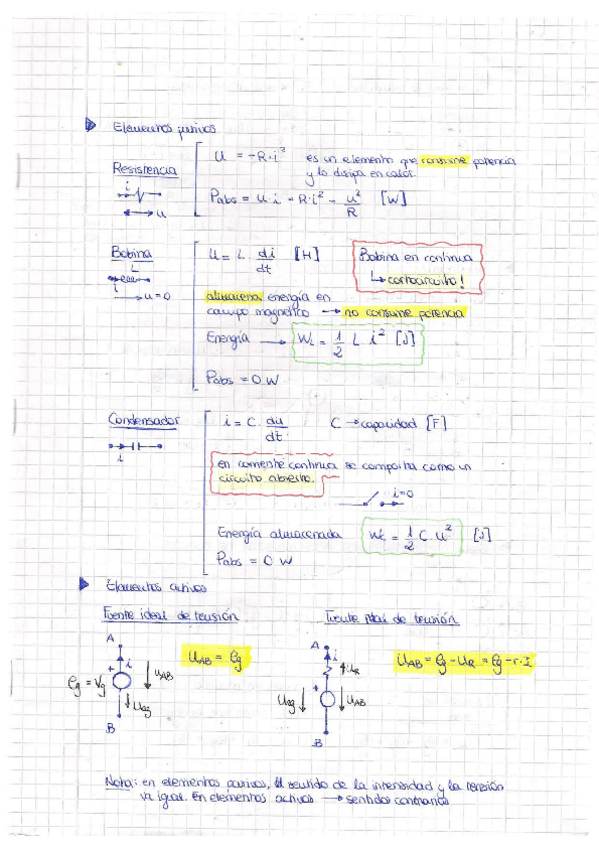 Elementos pasivos
Resistencia
i
u
U = -R·i²
es un elemento que consume potencia
y lo disipa en calor.
Pabs = u·i = R·i² = u²/R [W]
Bobina
L
i
u=0
u = L · di/dt [H]
Bobina en continua
↳ cortocircuito!
almacena energía en
campo magnético → no consume potencia
Energía → WL = 1/2 L i² [J]
Pabs = 0 W
Condensador
i
i = C · du/dt
C → capacidad [F]
en corriente continua se comporta como un
circuito abierto.
i=0
Energía almacenada Wc = 1/2 C·u² [J]
Pabs = 0 W
Elementos activos
Fuente ideal de tensión
A
i
+
eg = Vg
UAB
Ueg
B
UAB = eg
Fuente real de tensión
A
i
r
UR
+
Ueg
UAB
B
UAB = eg - UR = eg - r·I
Nota: en elementos pasivos, el sentido de la intensidad y la tensión
va igual. En elementos activos → sentidos contrarios